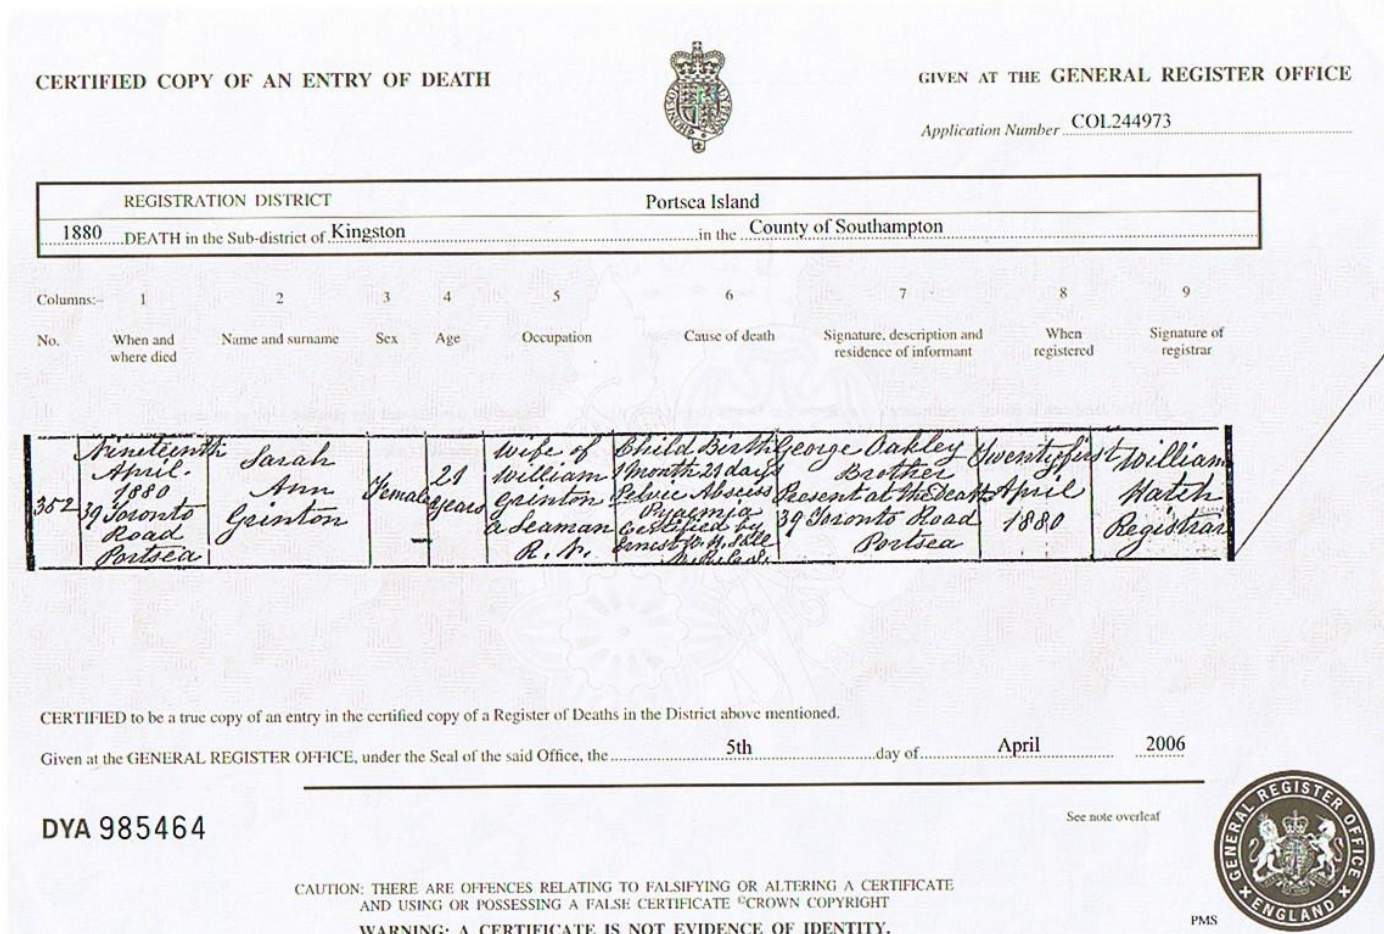 CERTIFIED COPY OF AN ENTRY OF DEATH
GIVEN AT THE GENERAL REGISTER OFFICE
Application Number COL244973
REGISTRATION DISTRICT Portsea Island
1880 DEATH in the Sub-district of Kingston in the County of Southampton
Columns:- 1 2 3 4 5 6 7 8 9
No.
When and
where died
Name and surname
Sex
Age
Occupation
Cause of death
Signature, description and
residence of informant
When
registered
Signature of
registrar
352
Nineteenth
April
1880
39 Toronto
Road
Portsea
Sarah
Ann
Grinton
Female
21
years
Wife of
William
Grinton
a Seaman
R.N.
Child Birth
1 month 21 days
Pelvic Abscess
Pyaemia
Certified by
Ernest
George Oakley
Brother
Present at the Death
39 Toronto Road
Portsea
Twenty first
April
1880
William
Hatch
Registrar
CERTIFIED to be a true copy of an entry in the certified copy of a Register of Deaths in the District above mentioned.
Given at the GENERAL REGISTER OFFICE, under the Seal of the said Office, the 5th day of April 2006
See note overleaf
DYA 985464
GENERAL REGISTER OFFICE
ENGLAND
CAUTION: THERE ARE OFFENCES RELATING TO FALSIFYING OR ALTERING A CERTIFICATE
AND USING OR POSSESSING A FALSE CERTIFICATE ©CROWN COPYRIGHT
WARNING: A CERTIFICATE IS NOT EVIDENCE OF IDENTITY.
PMS